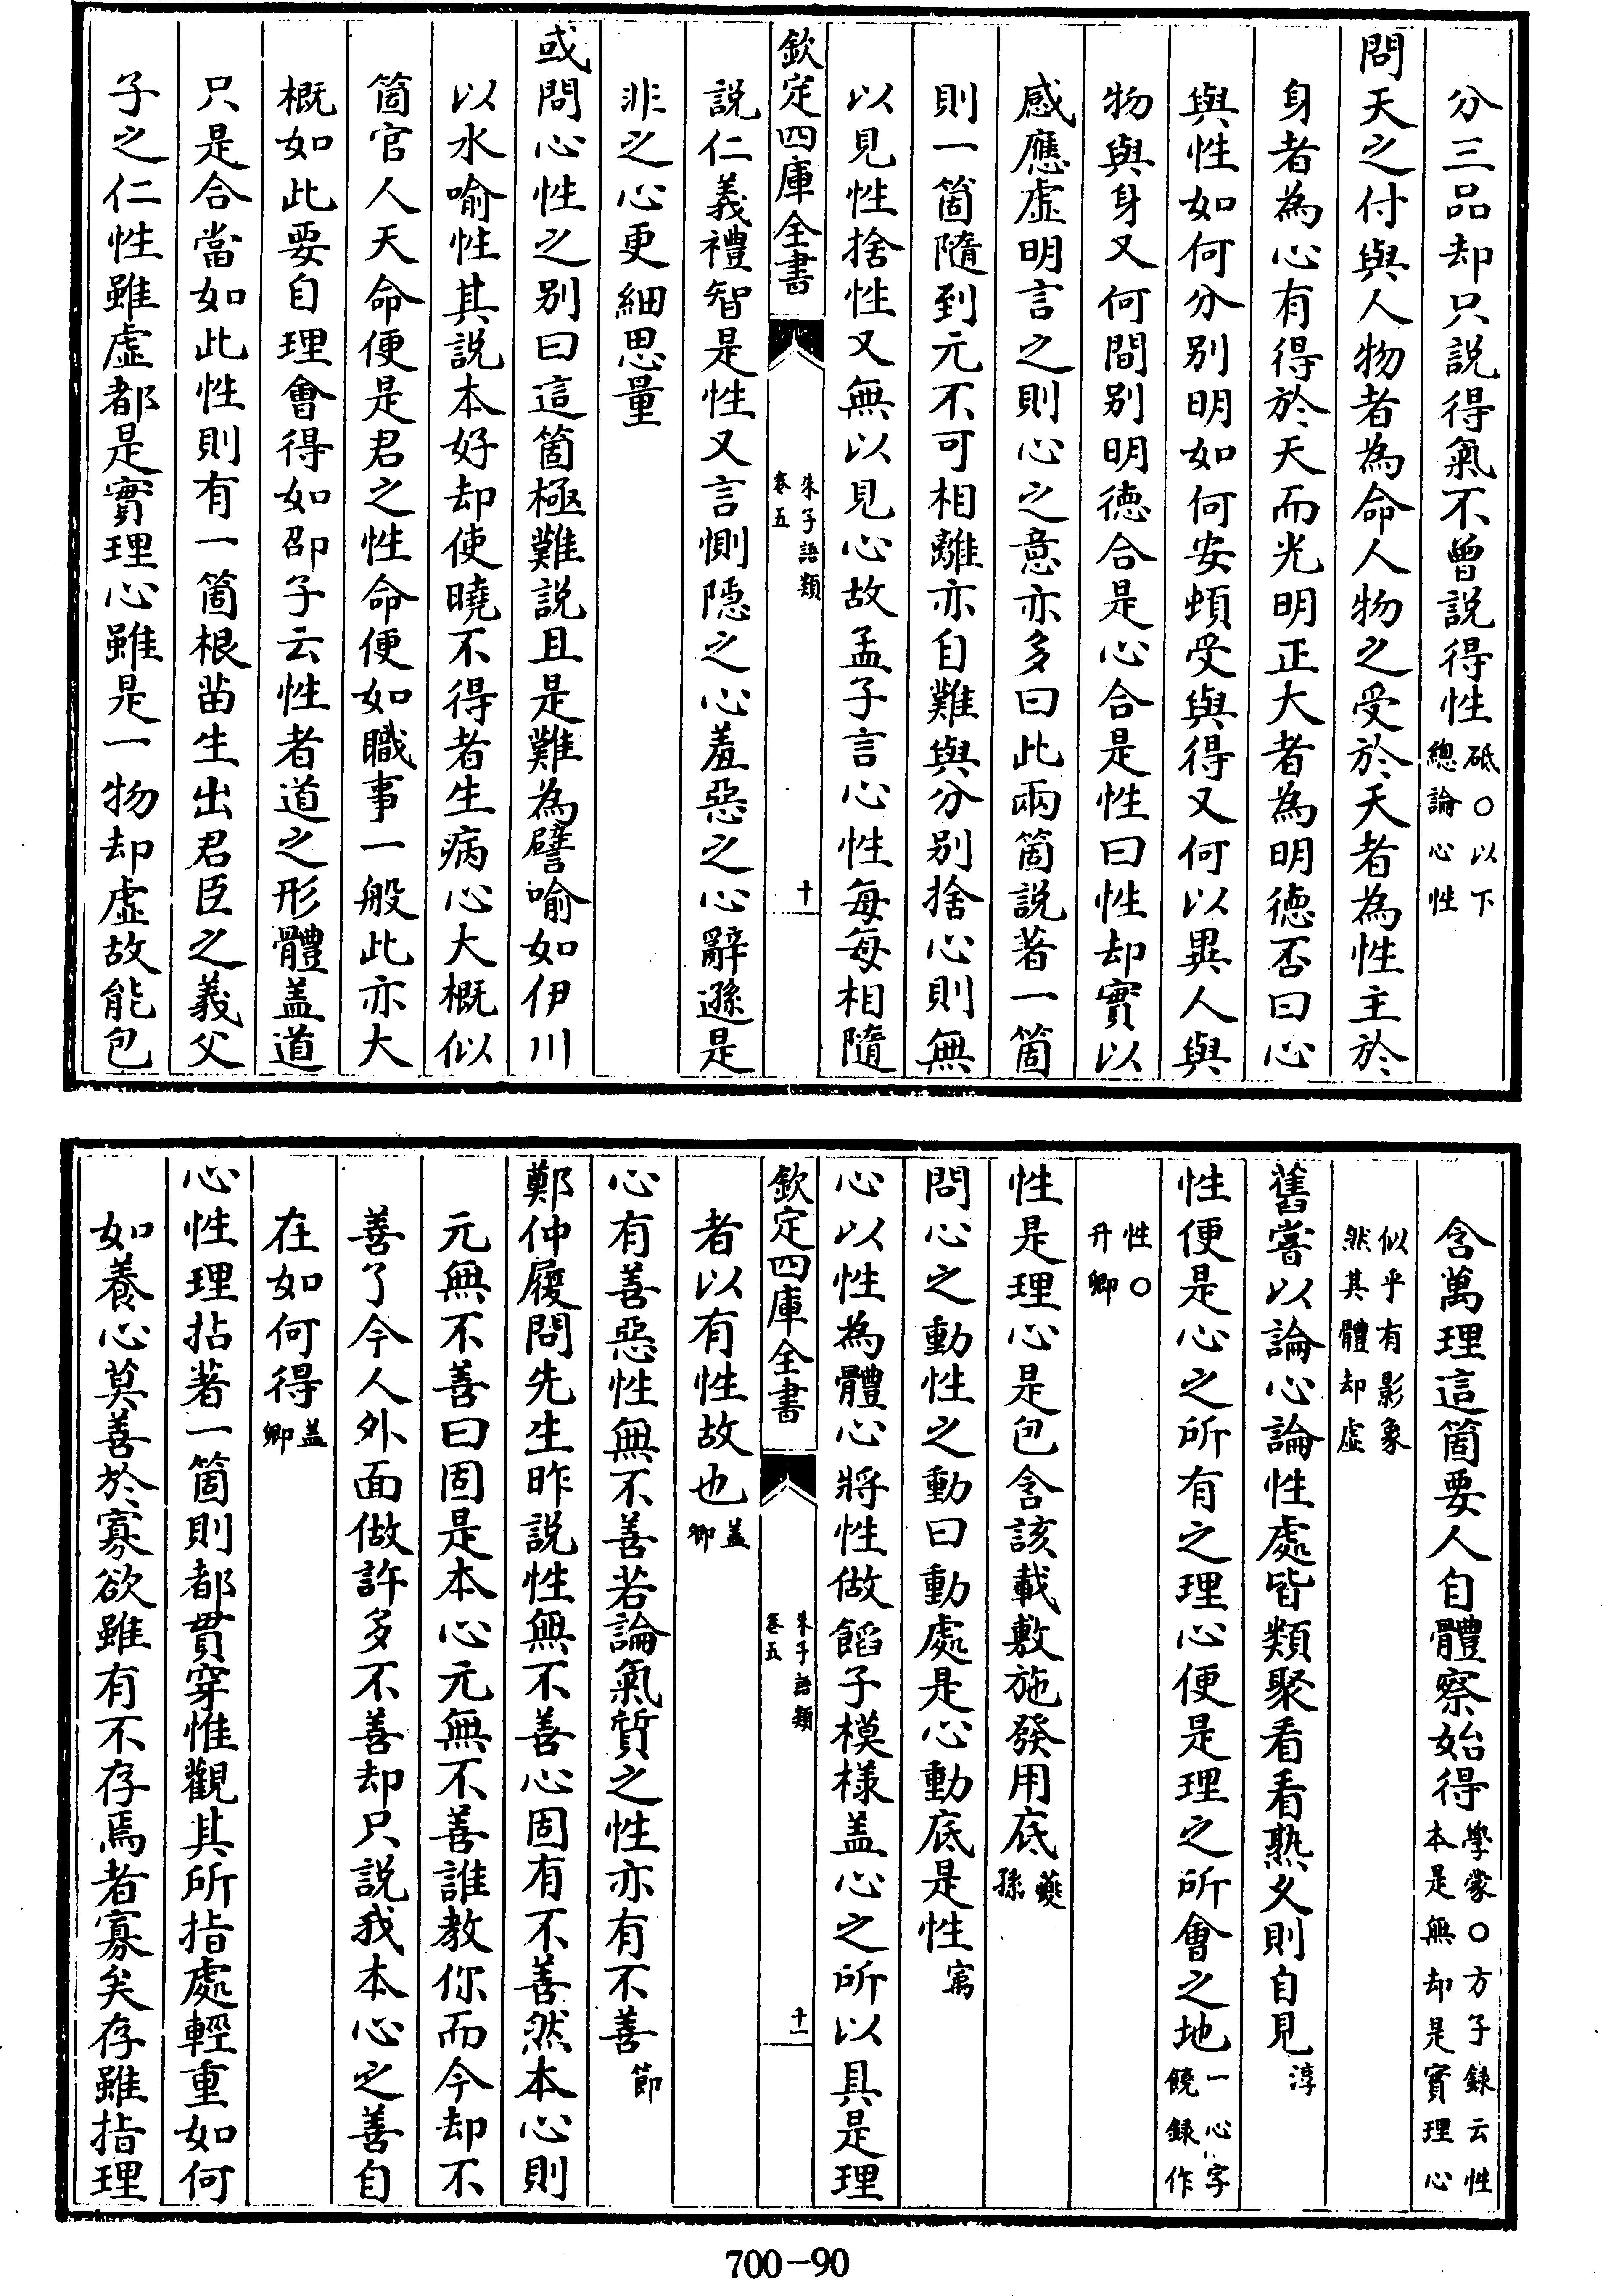 分三品却只説得氣不曾説得性砥○以下總論心性
問天之付與人物者為命人物之受於天者為性主於
身者為心有得於天而光明正大者為明徳否曰心
與性如何分别明如何安頓受與得又何以異人與
物與身又何間别明徳合是心合是性曰性却實以
感應虚明言之則心之意亦多曰此兩箇説著一箇
則一箇隨到元不可相離亦自難與分别捨心則無
以見性捨性又無以見心故孟子言心性每每相隨
欽定四庫全書 朱子語類 卷五 十
説仁義禮智是性又言惻隠之心羞惡之心辭遜是
非之心更細思量
或問心性之别曰這箇極難説且是難為譬喻如伊川
以水喻性其説本好却使曉不得者生病心大概似
箇官人天命便是君之性命便如職事一般此亦大
概如此要自理會得如邵子云性者道之形體盖道
只是合當如此性則有一箇根苗生出君臣之義父
子之仁性雖虚都是實理心雖是一物却虚故能包
含萬理這箇要人自體察始得學蒙○方子録云性本是無却是實理心
似乎有影象然其體却虚
舊嘗以論心論性處皆類聚看看熟乂則自見淳
性便是心之所有之理心便是理之所會之地一心字饒録作
性○升卿
性是理心是包含該載敷施發用底夔孫
問心之動性之動曰動處是心動底是性㝢
心以性為體心將性做饀子模様盖心之所以具是理
欽定四庫全書 朱子語類 卷五 十一
者以有性故也盖卿
心有善惡性無不善若論氣質之性亦有不善節
鄭仲履問先生昨説性無不善心固有不善然本心則
元無不善曰固是本心元無不善誰教你而今却不
善了今人外面做許多不善却只説我本心之善自
在如何得盖卿
心性理拈著一箇則都貫穿惟觀其所指處輕重如何
如養心莫善於寡欲雖有不存焉者寡矣存雖指理
700-90